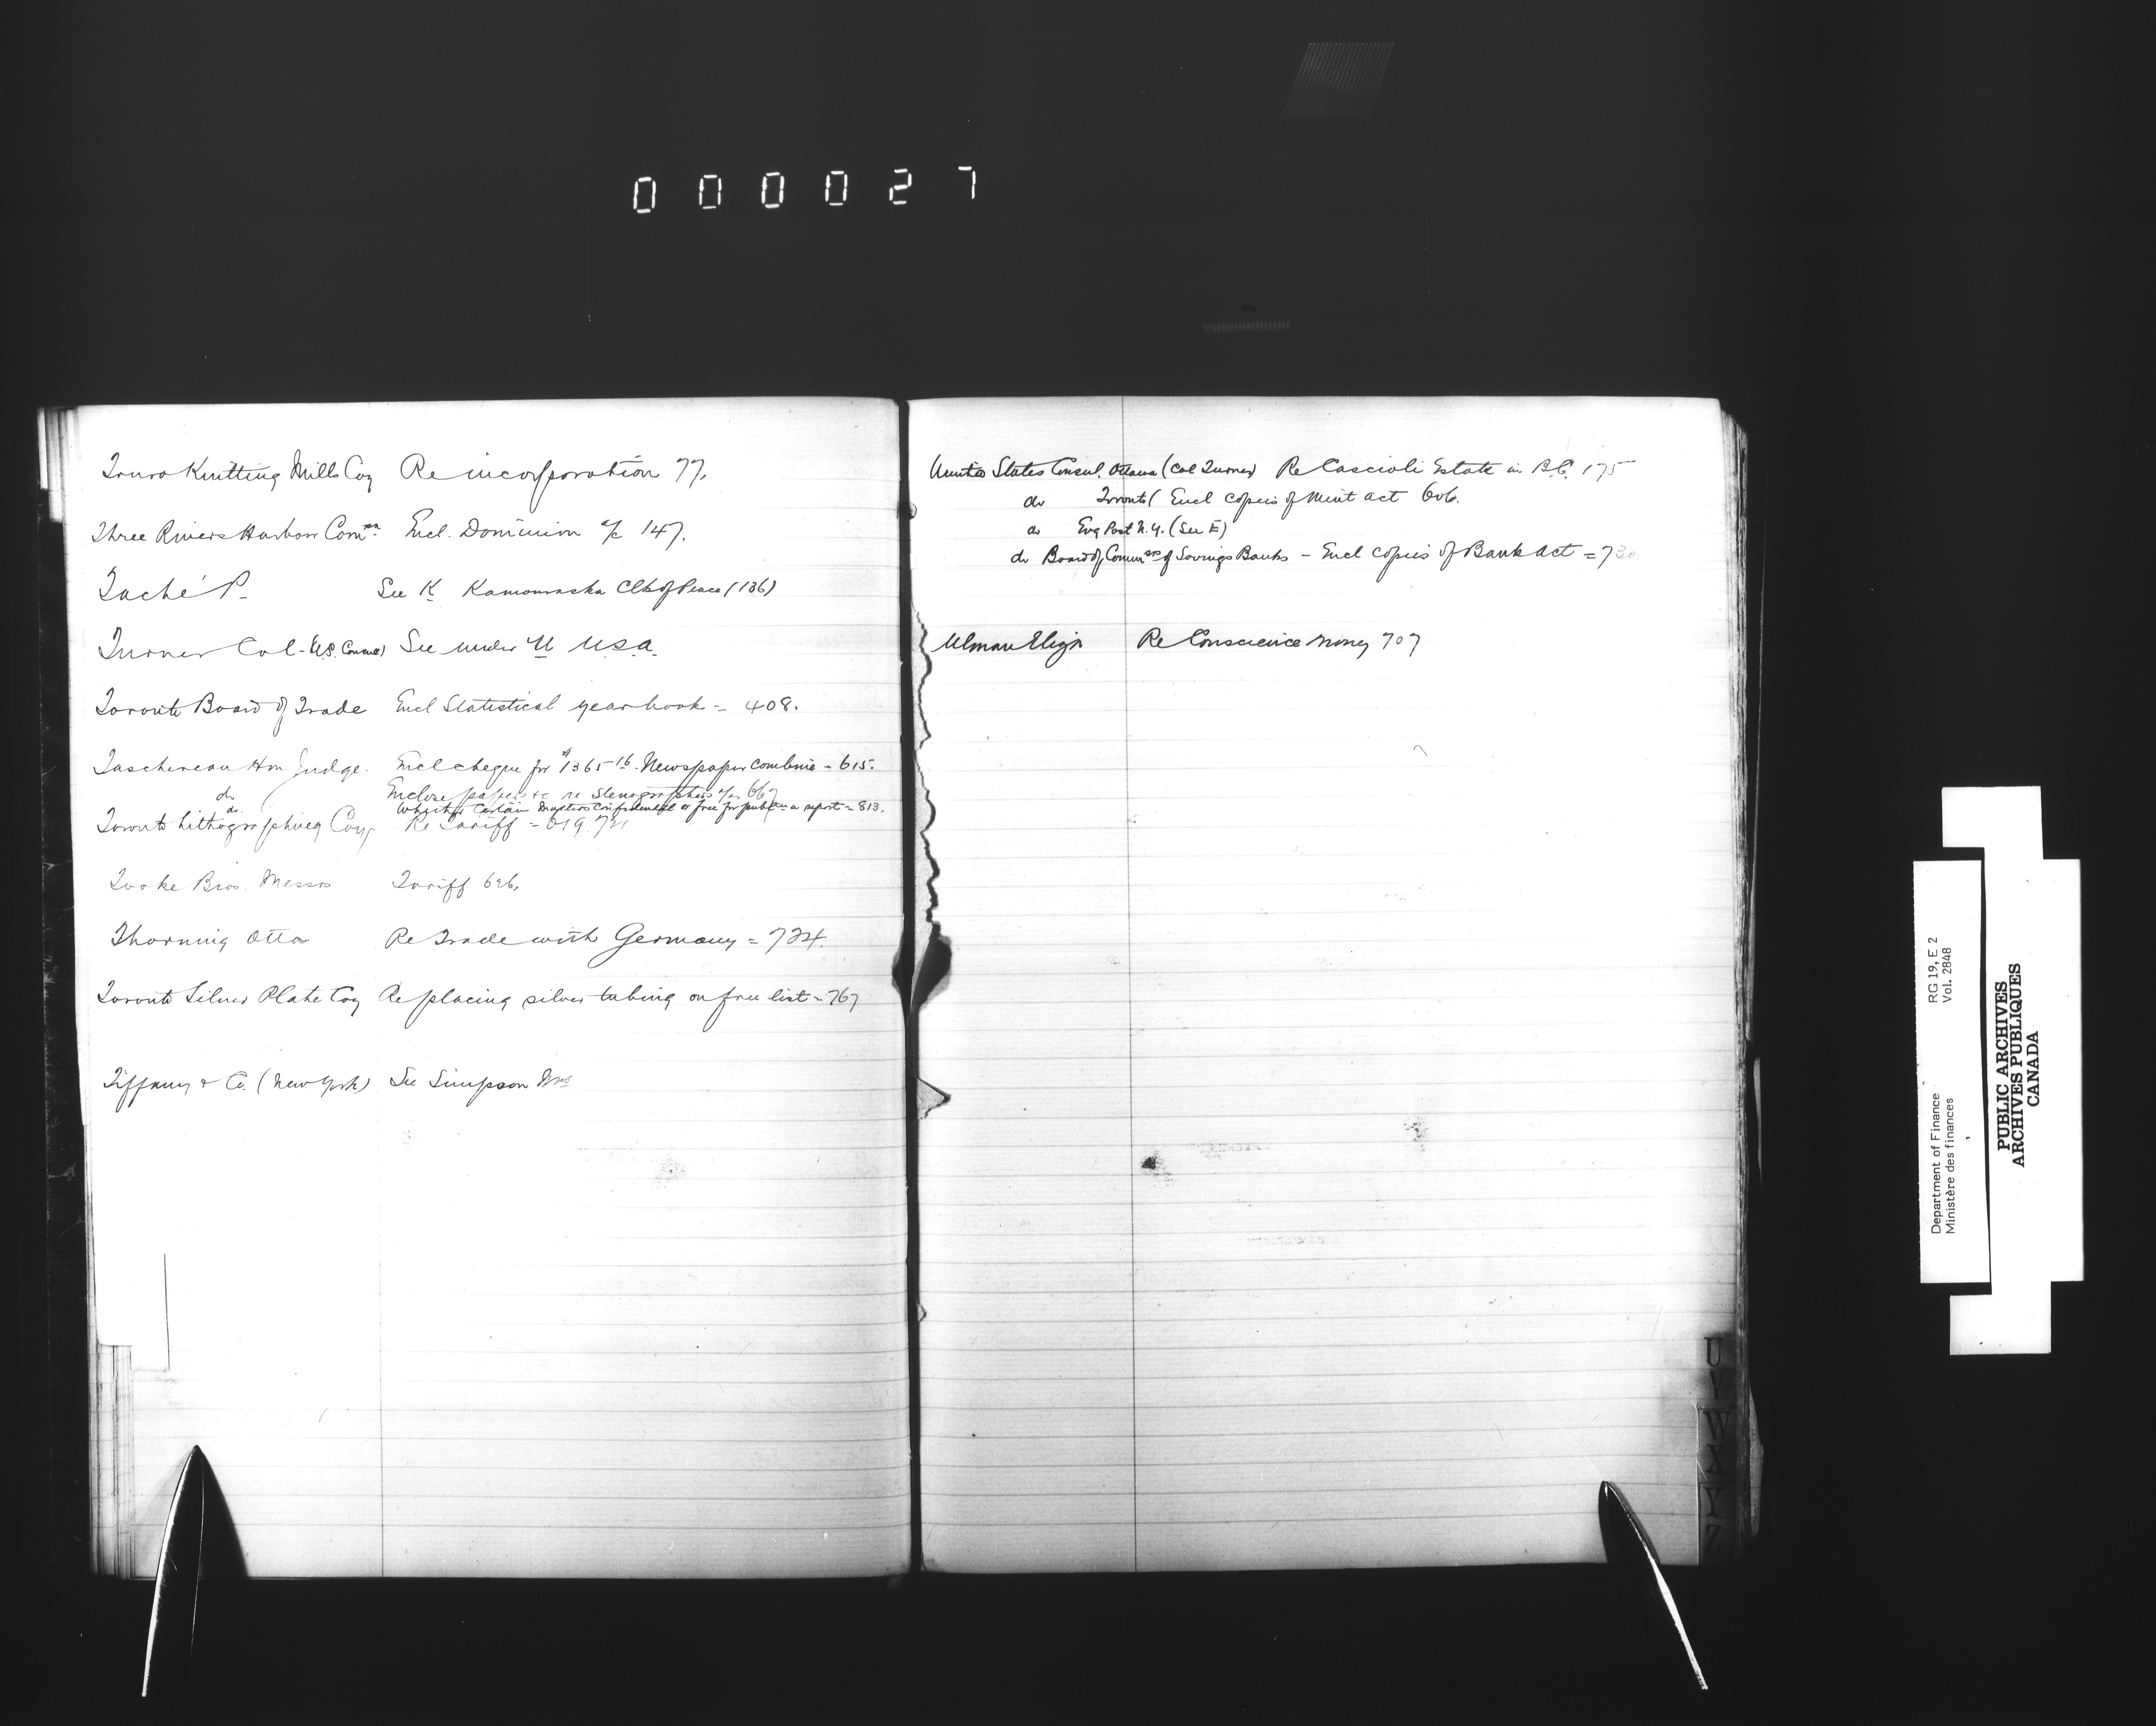 000027
Truro Knitting Mills Coy Re incorporation 77.
Three Rivers Harbour Comrs. Encl. Dominion a/c 147.
Taché P. See K Kamouraska Clk of Peace (136)
Turner Col - (U.S. Consul) See under U U.S.A.
Toronto Board of Trade Encl Statistical year book = 408.
Taschereau Hon Judge. Encl cheque for $1365 16. Newspaper combine - 615.
do Enclose papers &c re Stenographers a/c 667
do. Whether certain matters confidential or free for publicn in report = 813.
Toronto Lithographing Coy. Re Tariff = 619. 721
Tooke Bros. Messrs Tariff 626.
Thorning Otto Re Trade with Germany = 724.
Toronto Silver Plate Coy Re placing silver tubing on free list = 767
Tiffany & Co. (New York) See Simpson Wm
United States Consul. Ottawa (Col Turner) Re Cascioli Estate in B.C. 175
do Toronto ( Encl copies of Mint Act 606.
do Evg Post N.Y. (See E)
do Board of Commrs of Savings Banks - Encl copies of Bank Act = 730
Ulman Re Conscience money 707
U
V
W
X
Y
Z
Department of Finance RG 19, E 2
Ministère des finances Vol. 2848
PUBLIC ARCHIVES
ARCHIVES PUBLIQUES
CANADA